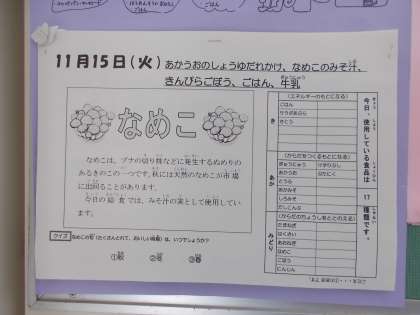 11月15日(火)
あかうおのしょうゆだれかけ、なめこのみそ汁、
きんぴらごぼう、ごはん、牛乳
なめこ
なめこは、ブナの切り株などに発生するぬめりの
あるきのこの一つです。秋には天然のなめこが市場
に出回ることがあります。
今日の給食では、みそ汁の実として使用してい
ます。
クイズ
なめこの旬(たくさんとれて、おいしい時期)は、いつでしょうか?
①秋 ②冬 ③春
今日、使用している食品は
17
種類です。
き
(エネルギーのもとになる)
ごはん
サラダあぶら
さとう
あか
(からだをつくるもとになる)
ぎゅうにゅう
あかうお
とうふ
あかみそ
しろみそ
だしこんぶ
みどり
(からだのちょうしをととのえる)
たまねぎ
はくさい
あおねぎ
なめこ
ごぼう
にんじん